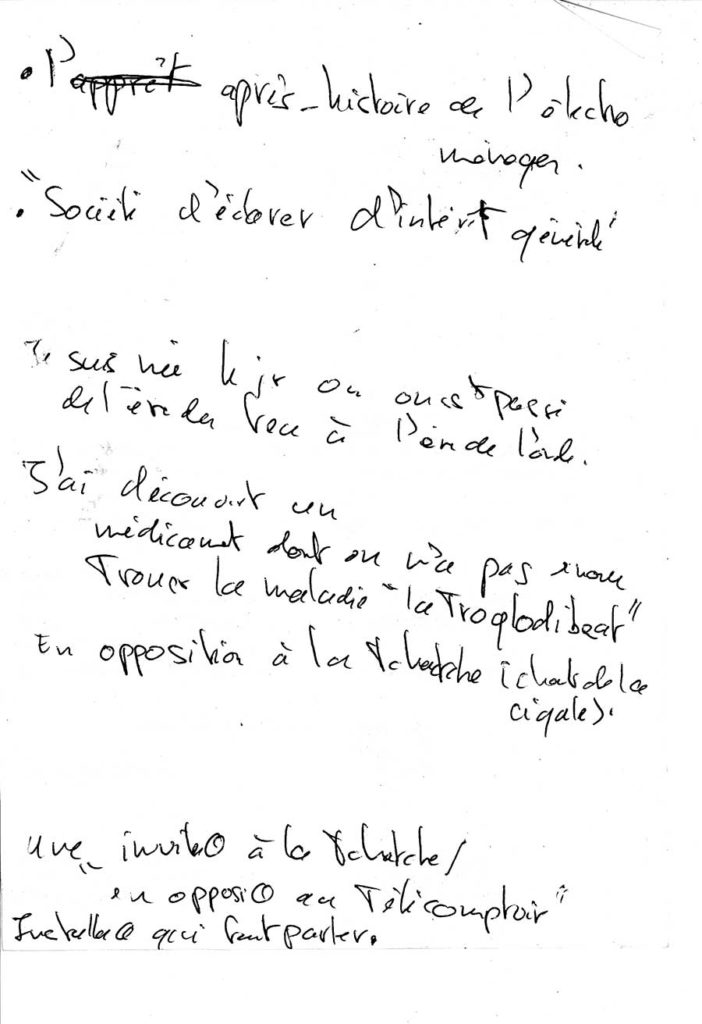 • l'apprêt après-histoire de l'
manager.
• "Société d' d'intérêt général"
Je suis née le jr ou on est passé
de l'ère du feu à l'ère de l'
J'ai découvert un
médicament dont on n'a pas encore
Trouver la maladie "la Troglodibeat"
En opposition à la Tchatche (chat de la
cigale).
une invité à la Tchatche/
"en opposi au Télécomptoir"
qui font parler.